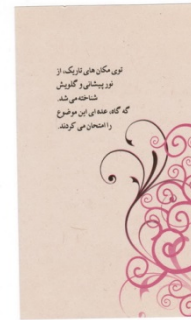 توی مکان های تاریک، از
نور پیشانی و گلویش
شناخته می شد.
گه گاه، عده ای این موضوع
را امتحان می کردند.